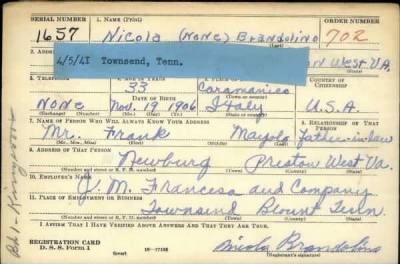 SERIAL NUMBER 1. NAME (Print) ORDER NUMBER
1657 Nicola (NONE) Brandolino 702
(Last)
2. ADDRESS
4/5/41 Townsend, Tenn.
West VA.
3. TELEPHONE 4. AGE IN YEARS 5. PLACE OF 6. COUNTRY OF CITIZENSHIP
33 Caramanico
DATE OF BIRTH (Town or county)
NONE Nov. 19 1906 Italy U.S.A
(Mo.) (Day) (Yr.) (State or country)
7. NAME OF PERSON WHO WILL ALWAYS KNOW YOUR ADDRESS 8. RELATIONSHIP OF THAT PERSON
Mr. Frank Father-in-law
(Mr., Mrs., Miss) (First) (Middle) (Last)
9. ADDRESS OF THAT PERSON
Newburg Preston West Va.
(Number and street or R. F. D. number) (Town) (County) (State)
10. EMPLOYER'S NAME
J. M. Francesa and Company
11. PLACE OF EMPLOYMENT OR BUSINESS
Townsend Blount Tenn.
(Number and street or R. F. D. number) (Town) (County) (State)
I AFFIRM THAT I HAVE VERIFIED ABOVE ANSWERS AND THAT THEY ARE TRUE.
REGISTRATION CARD
D. S. S. Form 1
(over) 16-17105
Nicola Brandolino
(Registrant's signature)